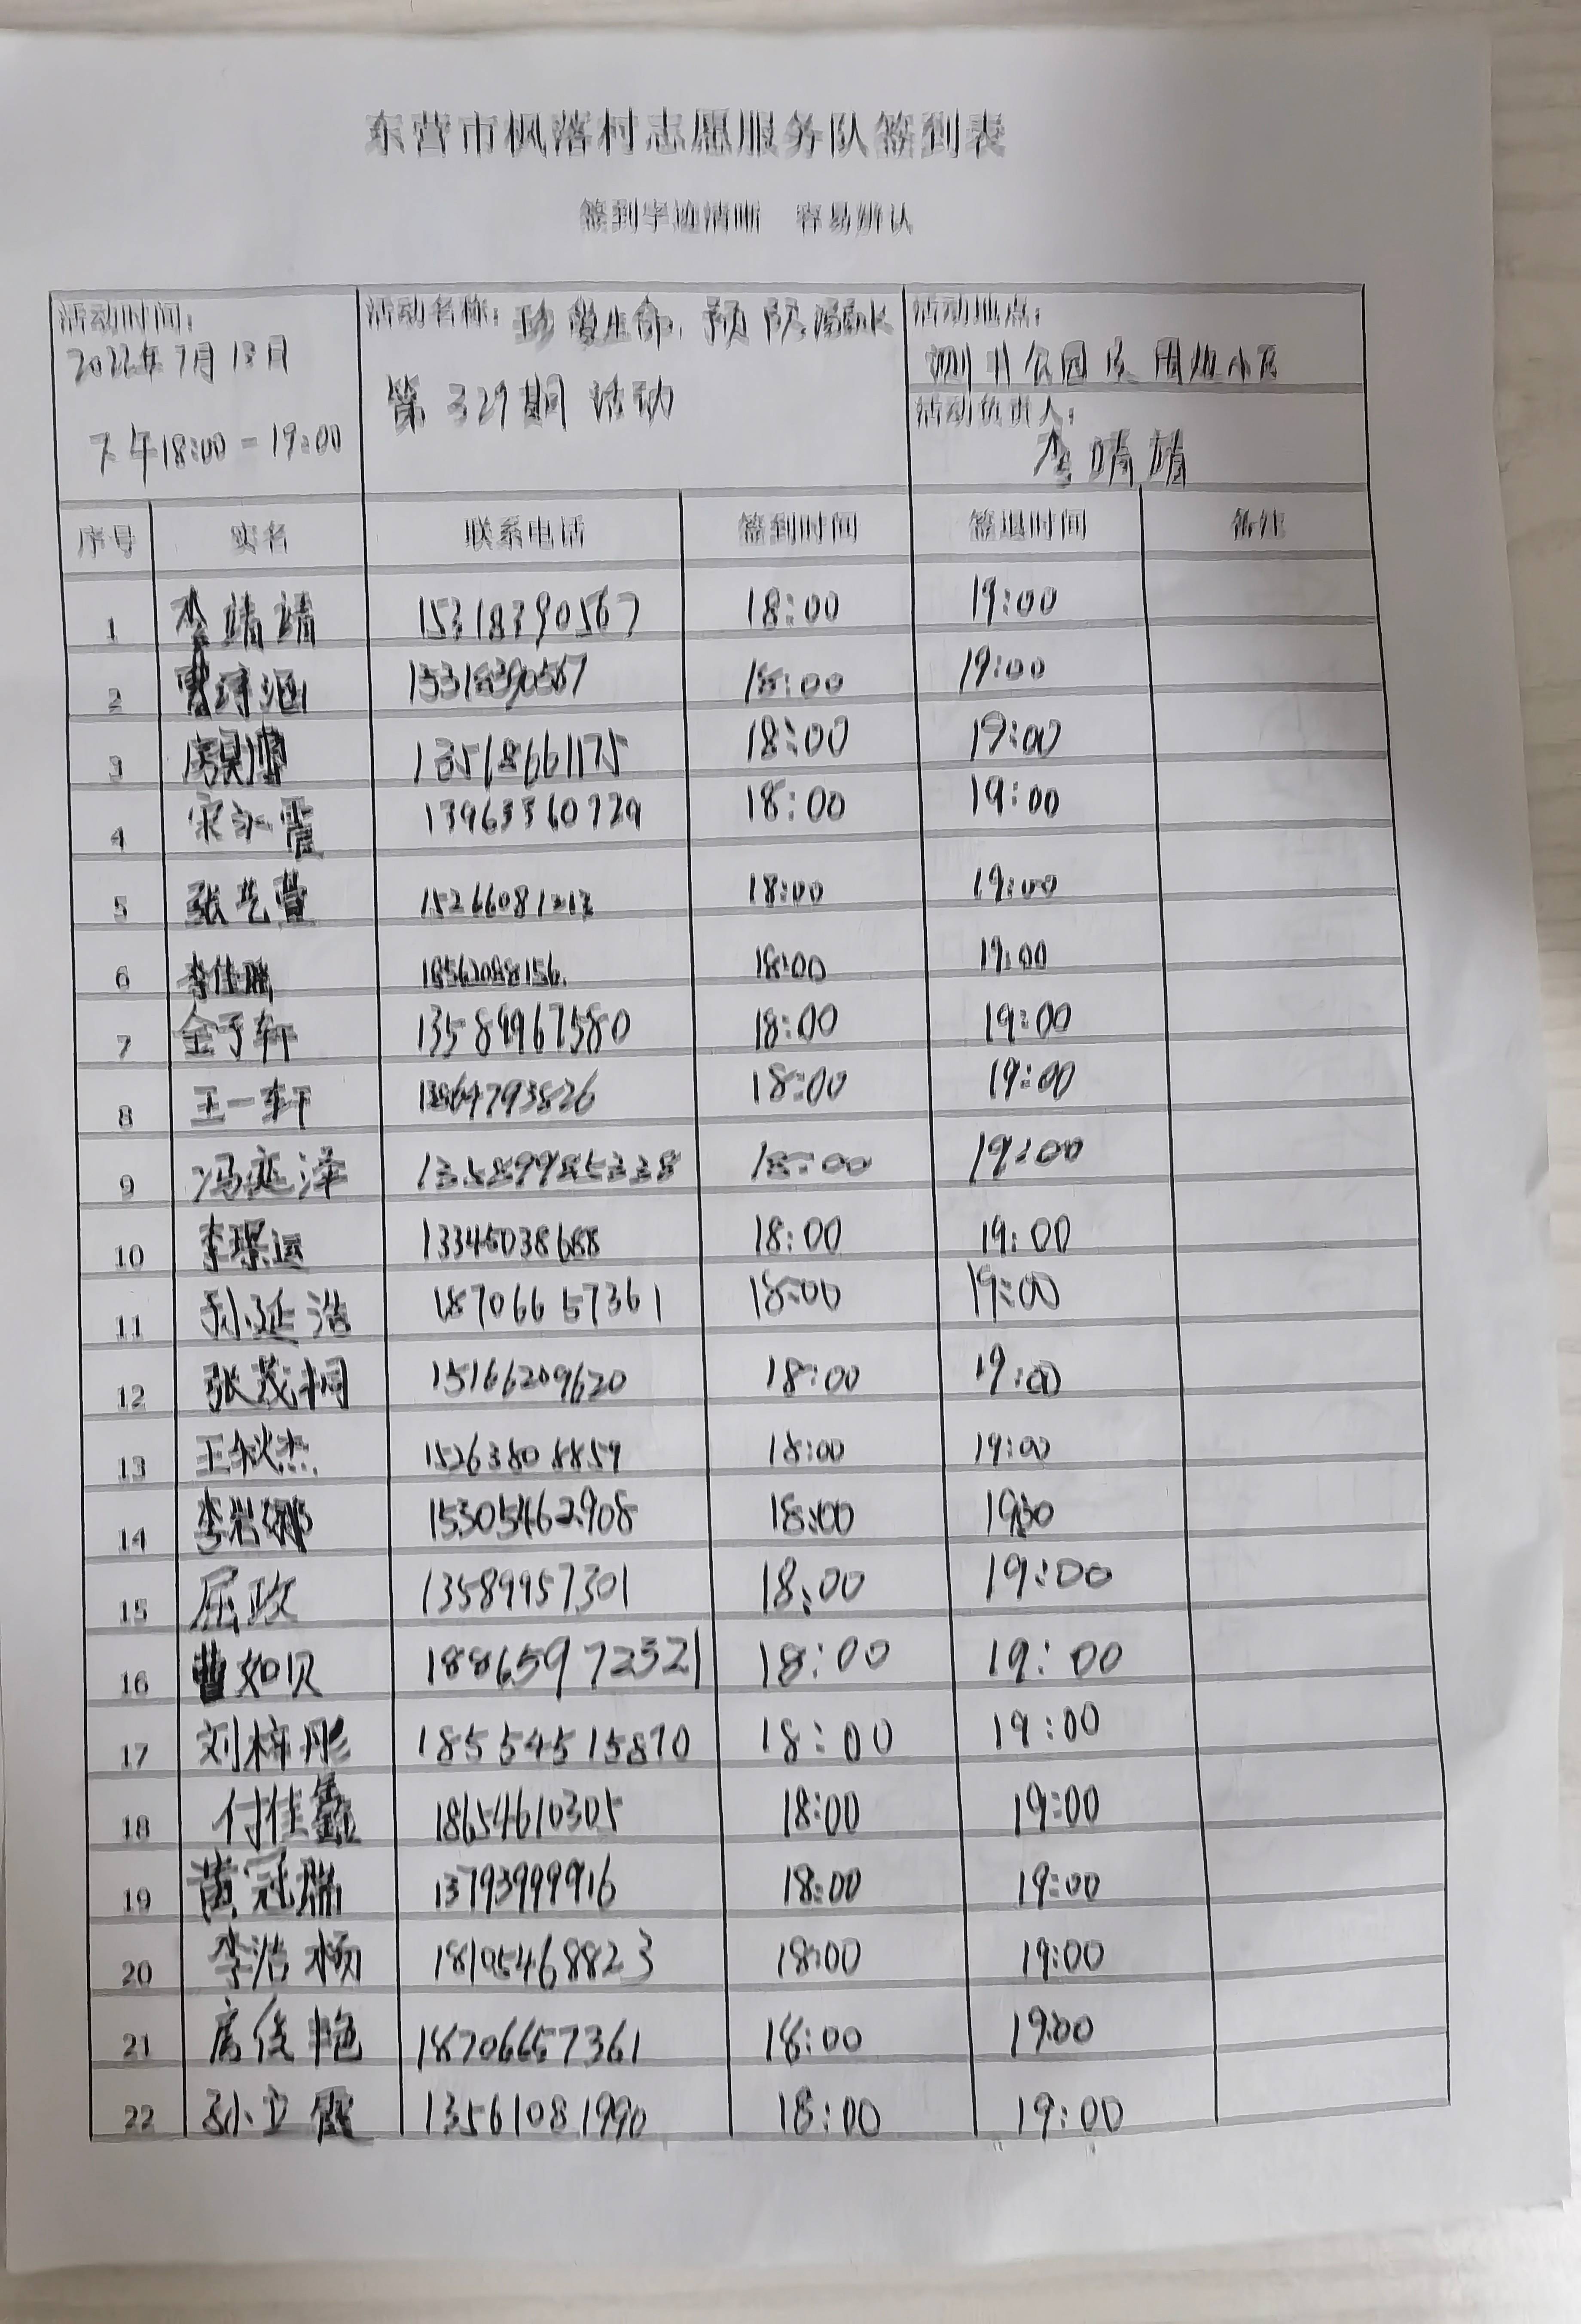 东营市枫落村志愿服务队签到表
签到字迹清晰 容易辨认
活动时间: 活动名称: 珍爱生命, 预防溺水 活动地点:
2022年7月13日 公园及周边小区
第329期活动 活动负责人:
下午18:00-19:00 李靖靖
序号 实名 联系电话 签到时间 签退时间 备注
1 李靖靖 15318390567 18:00 19:00
2 15318390567 18:00 19:00
3 13518661175 18:00 19:00
4 宋永霞 13963360729 18:00 19:00
5 张艺萱 15266081213 18:00 19:00
6 18:00 19:00
7 金子轩 13589967580 18:00 19:00
8 王一轩 18:00 19:00
9 冯奕泽 13589985338 18:00 19:00
10 13345038688 18:00 19:00
11 孙延浩 18706657361 18:00 19:00
12 张茂桐 15166209620 18:00 19:00
13 王秋杰 15263808859 18:00 19:00
14 李岩娜 15305462908 18:00
15 屈政 13589957301 18:00 19:00
16 曹如贝 18865972321 18:00 19:00
17 刘梓彤 18554515870 18:00 19:00
18 付佳鑫 18654610305 18:00 19:00
19 黄冠瑞 13793999916 18:00 19:00
20 李浩 18105468823 18:00 19:00
21 18706657361 18:00 19:00
22 孙立霞 13561081990 18:00 19:00